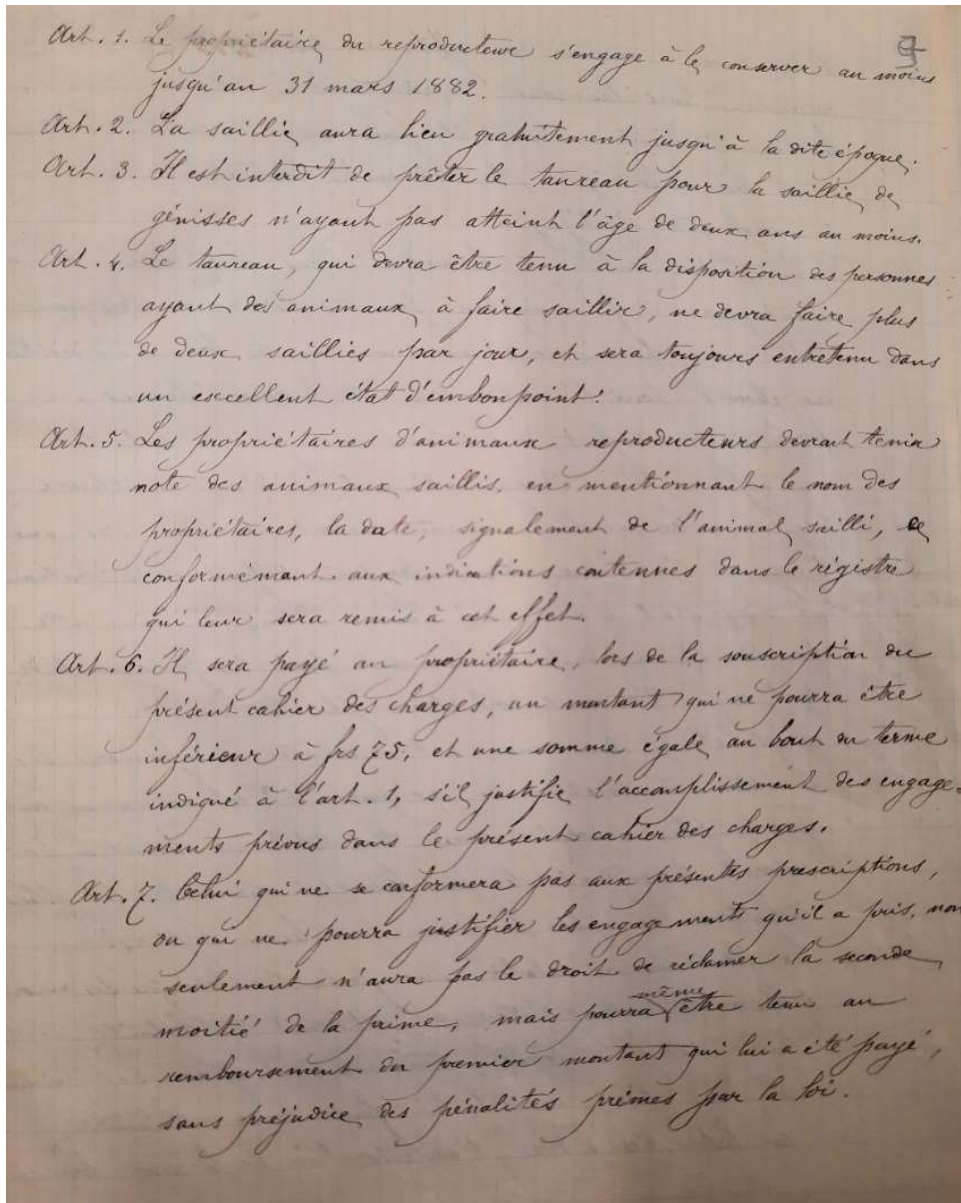 9
Art. 1. Le propriétaire du reproducteur s'engage à le conserver au moins
jusqu'au 31 mars 1882.
Art. 2. La saillie aura lieu gratuitement jusqu'à la dite époque.
Art. 3. Il est interdit de prêter le taureau pour la saillie de
génisses n'ayant pas atteint l'âge de deux ans au moins.
Art. 4. Le taureau, qui devra être tenu à la disposition des personnes
ayant des animaux à faire saillir, ne devra faire plus
de deux saillies par jour, et sera toujours entretenu dans
un excellent état d'embonpoint.
Art. 5. Les propriétaires d'animaux reproducteurs devront tenir
note des animaux saillis, en mentionnant le nom des
propriétaires, la date, signalement de l'animal sailli,
conformémant aux indications contenues dans le régistre
qui leur sera remis à cet effet.
Art. 6. Il sera payé au propriétaire, lors de la souscription du
présent cahier des charges, un montant qui ne pourra être
inférieur à frs 75, et une somme égale au bout du terme
indiqué à l'art. 1, s'il justifie l'accomplissement des engage-
ments prévus dans le présent cahier des charges.
Art. 7. Celui qui ne se conformera pas aux présentes prescriptions,
ou qui ne pourra justifier les engagements qu'il a pris, non
seulement n'aura pas le droit de réclamer la seconde
moitié de la prime, mais pourra même être tenu au
remboursement du premier montant qui lui a été payé,
sans préjudice des pénalités prévues par la loi.